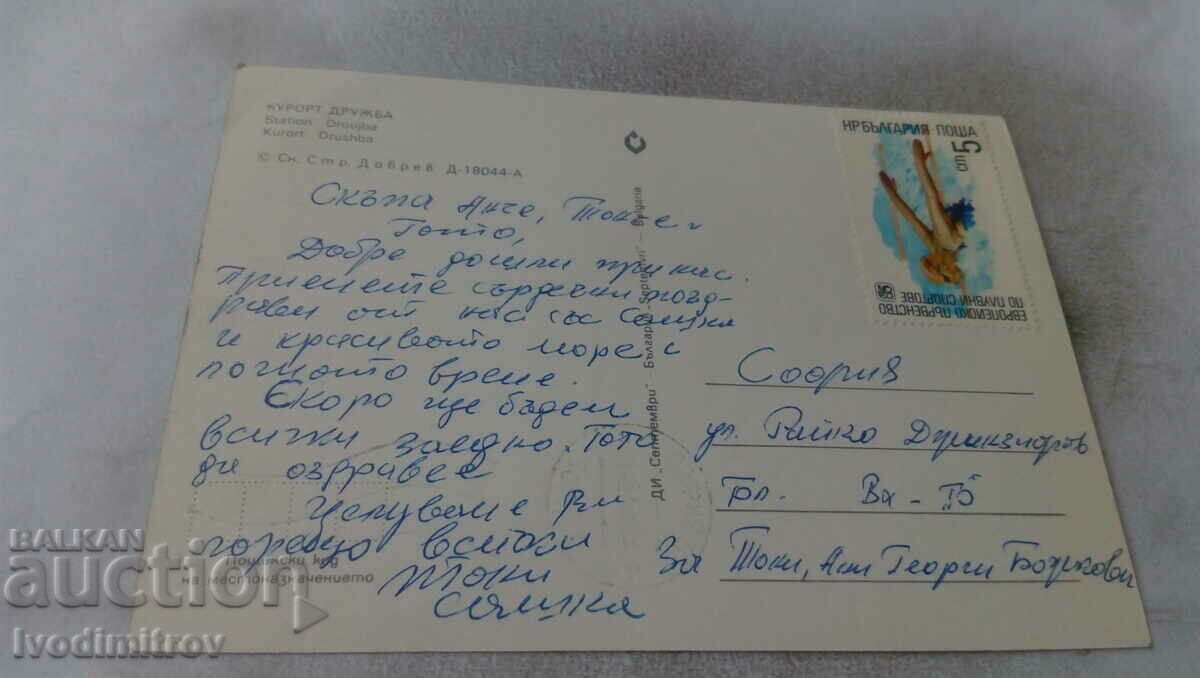 КУРОРТ ДРУЖБА
Station Droujba
Kurort Drushba
© Сн. Стр. Добрев Д-18044-А
Скъпа Анче,
Тото,
Добре дошли при нас.
Приемете сърдечни позд-
рави от нас със
и красивото море и
времe.
Скоро ще бъдем
всички заедно. Тото
да оздравее
Целуваме Ви
горещо всички
Токи
ДИ „Септември" — България „Septemvri" — Bulgaria
НР БЪЛГАРИЯ·ПОЩА
5 ст
ЕВРОПЕЙСКО ПЪРВЕНСТВО
ПО ПЛУВНИ СПОРТОВЕ
София
ул. Райко
Бл. Вх-Б
За Токи, Ани Георги Божкови
Пощенски код
на местоназначението
BALKAN
Auction
Ivodimitrov